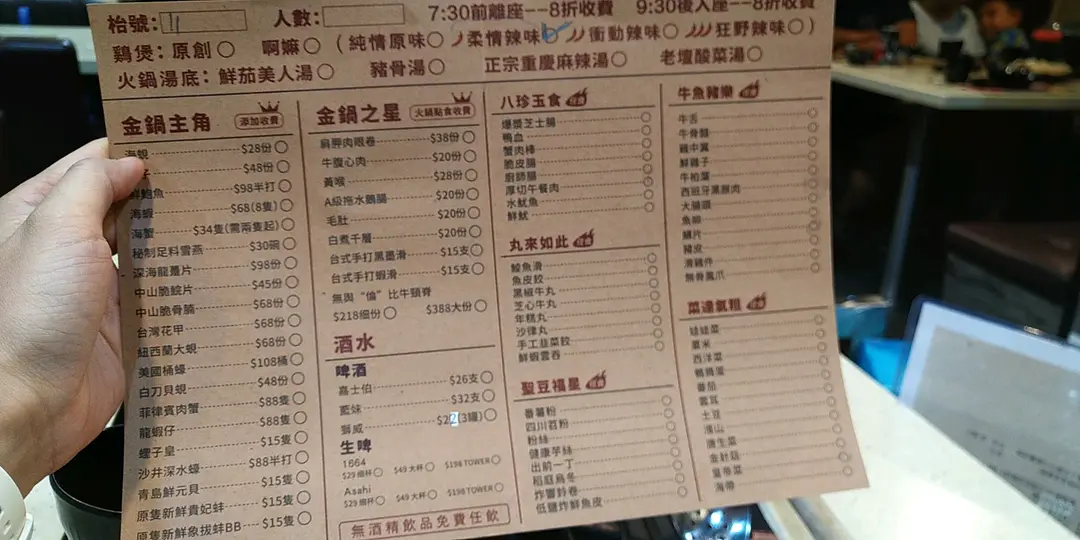 枱號: 11 人數: 7:30前離座--8折收費 9:30後入座--8折收費
鷄煲: 原創○ 啊嫲○ (純情原味○ 柔情辣味○ 衝動辣味○ 狂野辣味○)
火鍋湯底: 鮮茄美人湯○ 豬骨湯○ 正宗重慶麻辣湯○ 老壇酸菜湯○
金鍋主角 添加收費
海蜆 $28份
$48份
鮮鮑魚 $98半打
海蝦 $68(8隻)
海蟹 $34隻(需兩隻起)
秘制足料雪燕 $30碗
深海龍躉片 $98份
中山脆鯇片 $45份
中山脆骨腩 $68份
台灣花甲 $68份
紐西蘭大蜆 $68份
美國桶蠔 $108桶
白刀貝蜆 $48份
菲律賓肉蟹 $88隻
龍蝦仔 $88隻
螺子皇 $15隻
沙井深水蠔 $88半打
青島鮮元貝 $15隻
原隻新鮮貴妃蚌 $15隻
原隻新鮮象拔蚌BB $15隻
金鍋之星 火鍋點食收費
肩胛肉眼卷 $38份
牛腹心肉 $20份
黃喉 $28份
A級拖水鵝腸 $20份
毛肚 $20份
白煮千層 $20份
台式手打黑墨滑 $15支
台式手打蝦滑 $15支
無與“倫”比牛頸脊
$218细份 $388大份
酒水
啤酒
嘉士伯 $26支
藍妹 $32支
獅威 $22(3罐)
生啤
1664
$29 細杯 $49 大杯 $198 TOWER
Asahi
$29 細杯 $49 大杯 $198 TOWER
無酒精飲品免費任飲
八珍玉食 任食
爆漿芝士腸
鴨血
蟹肉棒
脆皮腸
廚師腸
厚切午餐肉
水魷魚
鮮魷
丸來如此 任食
鯪魚滑
魚皮餃
黑椒牛丸
芝心牛丸
年糕丸
沙律丸
手工韭菜餃
鮮蝦雲吞
聖豆福星 任食
番薯粉
四川苕粉
粉絲
健康芋絲
出前一丁
稻庭烏冬
炸響鈴卷
低鹽炸鮮魚皮
牛魚雞樂 任食
牛舌
牛骨髓
雞中翼
鮮雞子
牛柏葉
西班牙黑豚肉
大腸頭
魚卵
豬皮
無骨鳳爪
菜達氣粗 任食
娃娃菜
粟米
西洋菜
鵪鶉蛋
番茄
雲耳
土豆
淮山
唐生菜
金針菇
皇帝菜
海帶